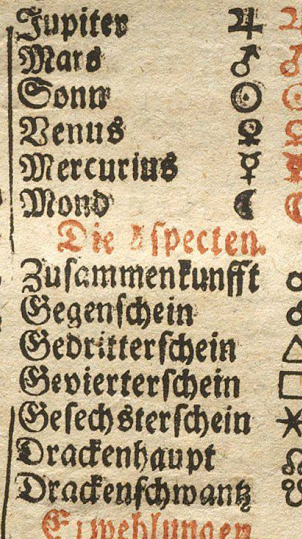 Jupiter ♃ ♃
Mars ♂ ♂
Sonn ☉ ☉
Venus ♀ ♀
Mercurius ☿ ☿
Mond ☾ ☾
Die Aspecten.
Zusammenkunfft ☌
Gegenschein ☍
Gedritterschein △
Gevierterschein □
Gesechsterschein ⚹
Drackenhaupt ☊
Drackenschwantz ☋
Erwehlungen